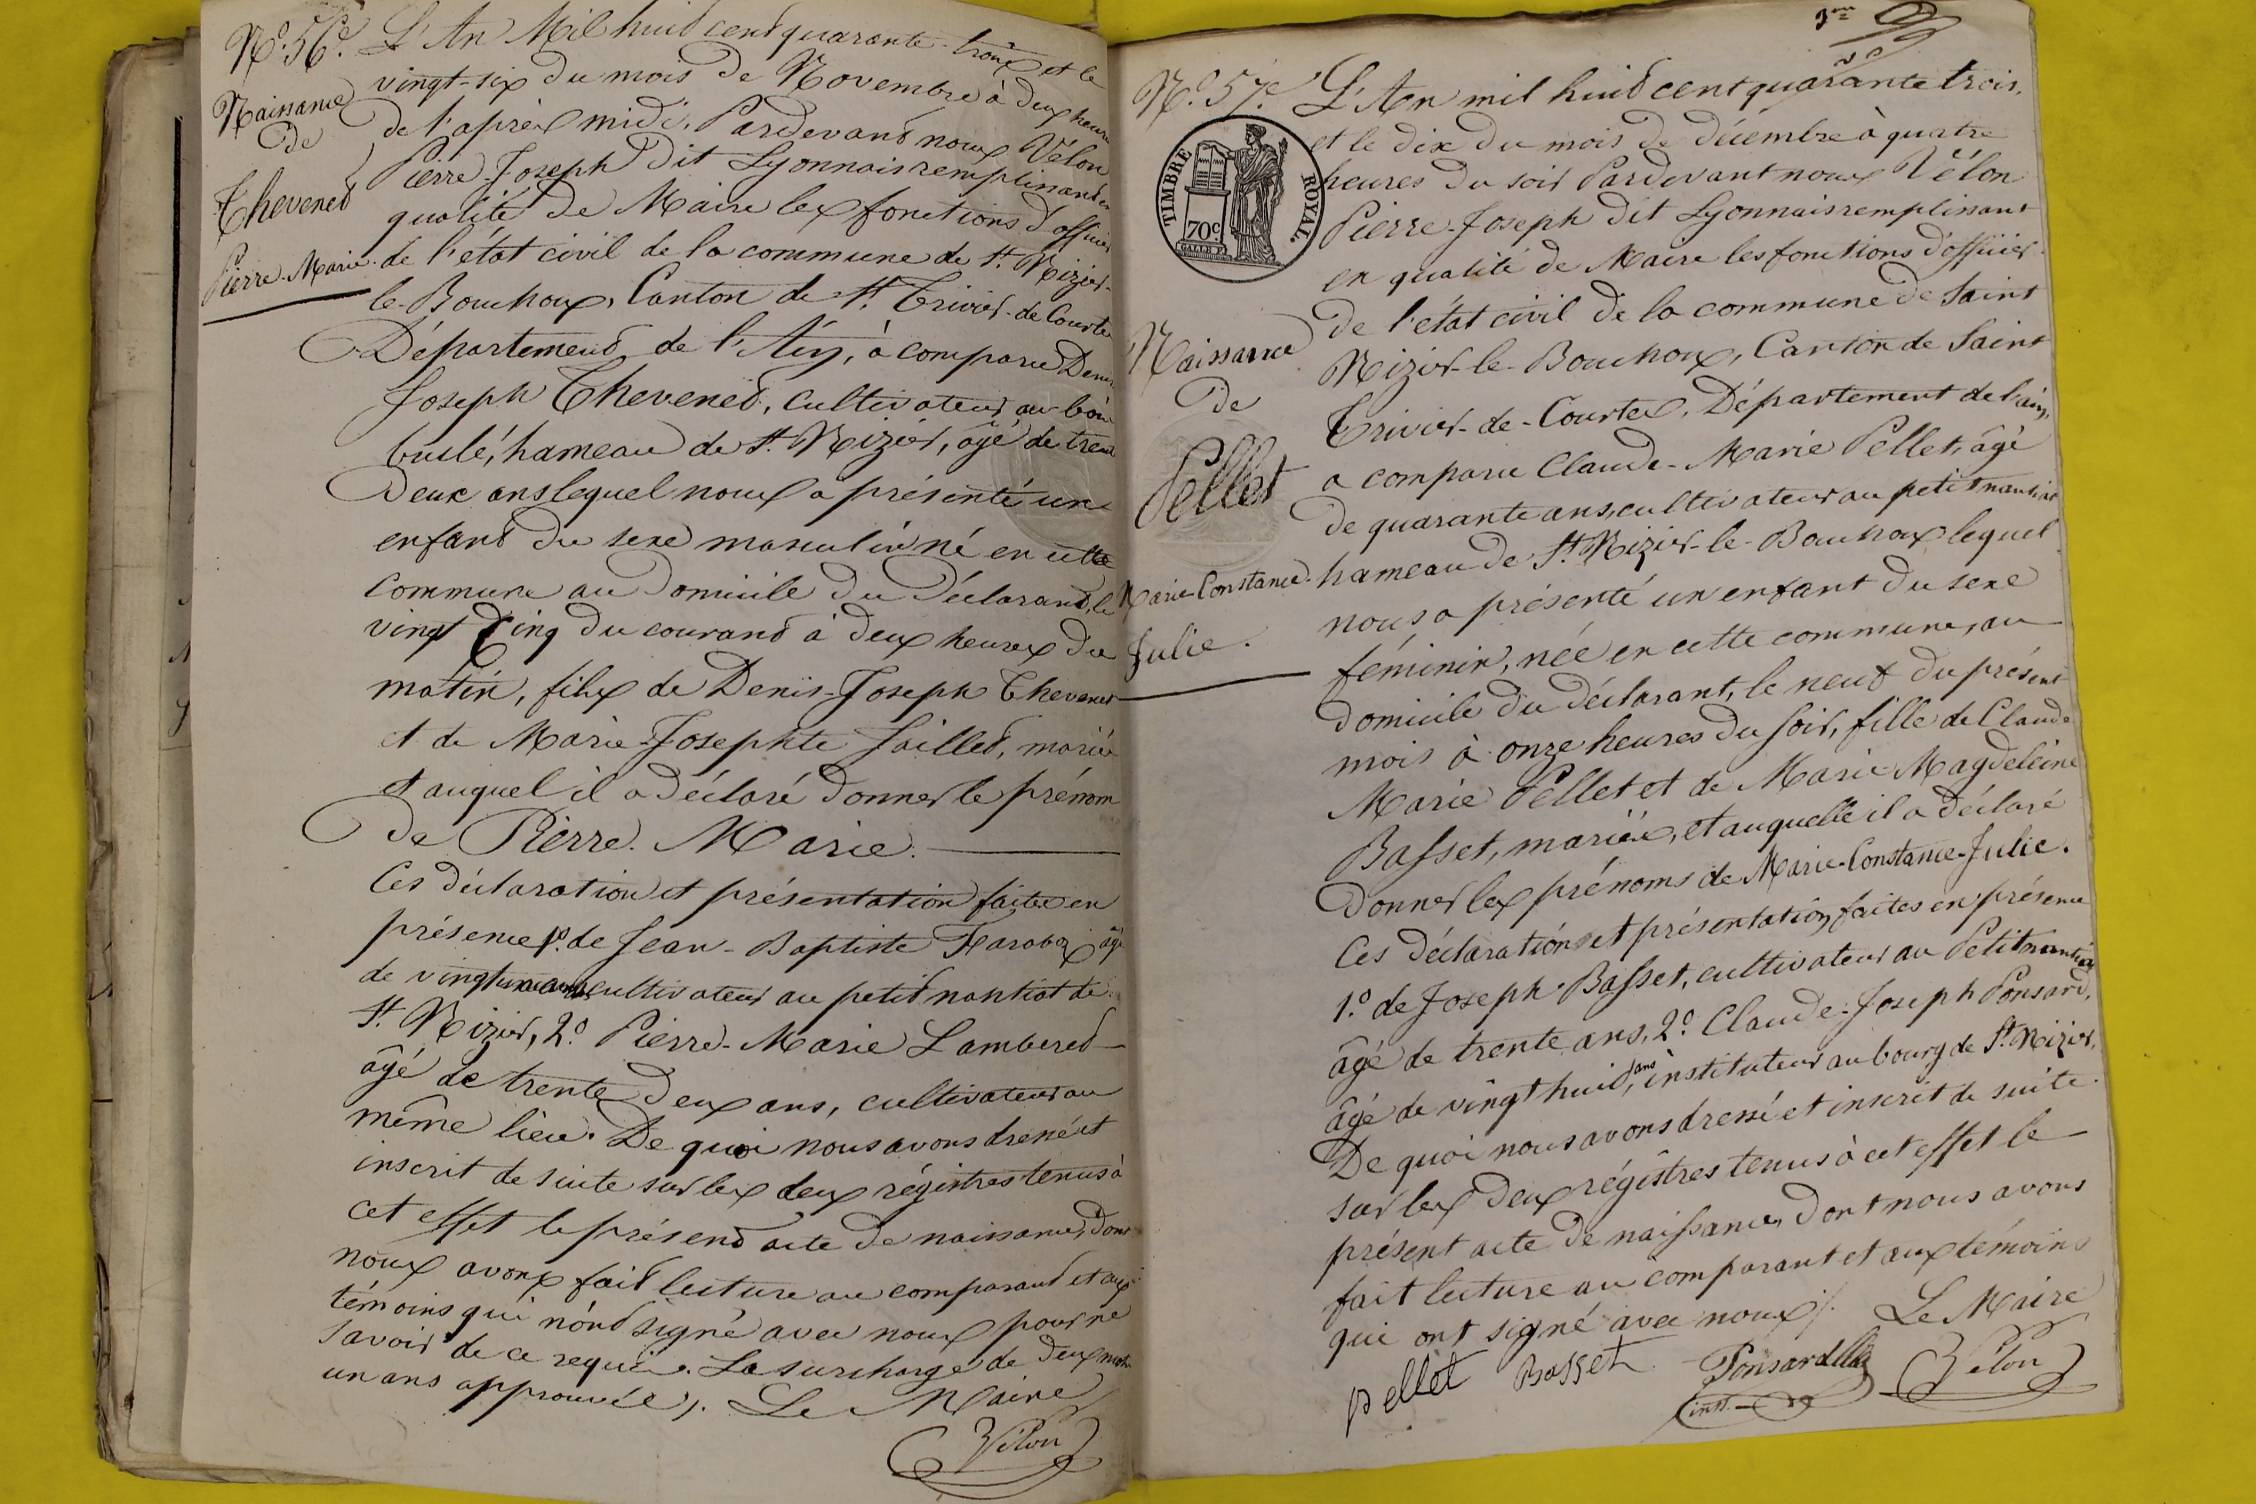 N.o 56.e
Naissance
de
Thevenet
Pierre-Marie.
L'An Mil huit cent quarante-trois et le
vingt-six du mois de Novembre à deux heures
de l'après midi, Pardevant nous Vélon
Pierre-Joseph dit Lyonnais remplissant en
qualité de Maire les fonctions d'officier
de l'état civil de la commune de St. Nizier-
le-Bouchoux, Canton de St. Trivier-de Courtes
Département de l'Ain, à comparu Denis
Joseph Thevenet, cultivateur au bois
brulé, hameau de St. Nizier, âgé de trente
Deux ans lequel nous a présenté un
enfant du sexe masculin né en cette
commune au domicile du Déclarant, le
vingt Cinq du courant à deux heures du
matin, fils de Denis-Joseph Thevenet
et de Marie-Josephte Jaillet, mariés
et auquel il a déclaré donner le prénom
de Pierre. Marie.
Ces déclaration et présentation faites en
présence 1.o de Jean-Baptiste âgé
de vingt un ans cultivateur au petit nantiat de
St. Nizier, 2.o Pierre-Marie Lamberet
âgé de trente Deux ans, cultivateur au
même lieu. De quoi nous avons dressé et
inscrit de suite sur les deux régistres tenus à
cet effet le présent acte de naissance, dont
nous avons fait lecture au comparant et aux
témoins qui n'ont signé avec nous pour ne
savoir de ce requis. La surcharge de deux mots
un ans approuvée. Le Maire
Vélon
N.o 57.e
TIMBRE ROYAL.
70c
Naissance
de
Pellet
Marie-Constance-
Julie.
L'An mil huit cent quarante trois,
et le dix du mois de décembre à quatre
heures du soir Pardevant nous Vélon
Pierre-Joseph dit Lyonnais remplissant
en qualité de Maire les fonctions d'officier
de l'état civil de la commune de Saint
Nizier-le-Bouchoux, Canton de Saint
Trivier-de-Courtes, Département de l'ain,
a comparu Claude-Marie Pellet, âgé
de quarante ans, cultivateur au petit nantiat
hameau de St. Nizier-le-Bouchoux lequel
nous a présenté un enfant du sexe
féminin, née en cette commune, au
domicile du déclarant, le neuf du présent
mois à onze heures du soir, fille de Claude
Marie Pellet et de Marie-Magdeleine
Basset, mariés, et auquelle il a déclaré
donner les prénoms de Marie-Constance-Julie.
Ces déclaration et présentation faites en présence
1.o de Joseph Basset, cultivateur au Petit nantiat,
âgé de trente ans, 2.o Claude-Joseph Ponsard,
âgé de vingt huit, ans instituteur au bourg de St. Nizier.
De quoi nous avons dressé et inscrit de suite
sur les deux régistres tenus à cet effet le
présent acte de naissance, dont nous avons
fait lecture au comparant et aux témoins
qui ont signé avec nous. Le Maire
pellet Basset Ponsard Vélon
inst.